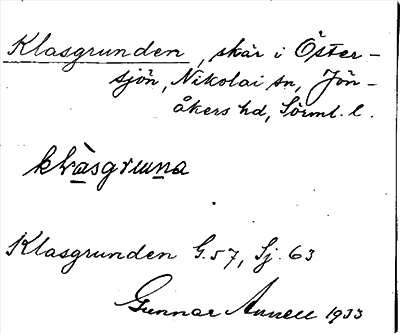 Klasgrunden, skär i Öster-
sjön, Nikolai sn, Jön-
åkers hd, Sörml. l.
klàsgruna
Klasgrunden G. 57, Sj. 63
Gunnar Annell 1933